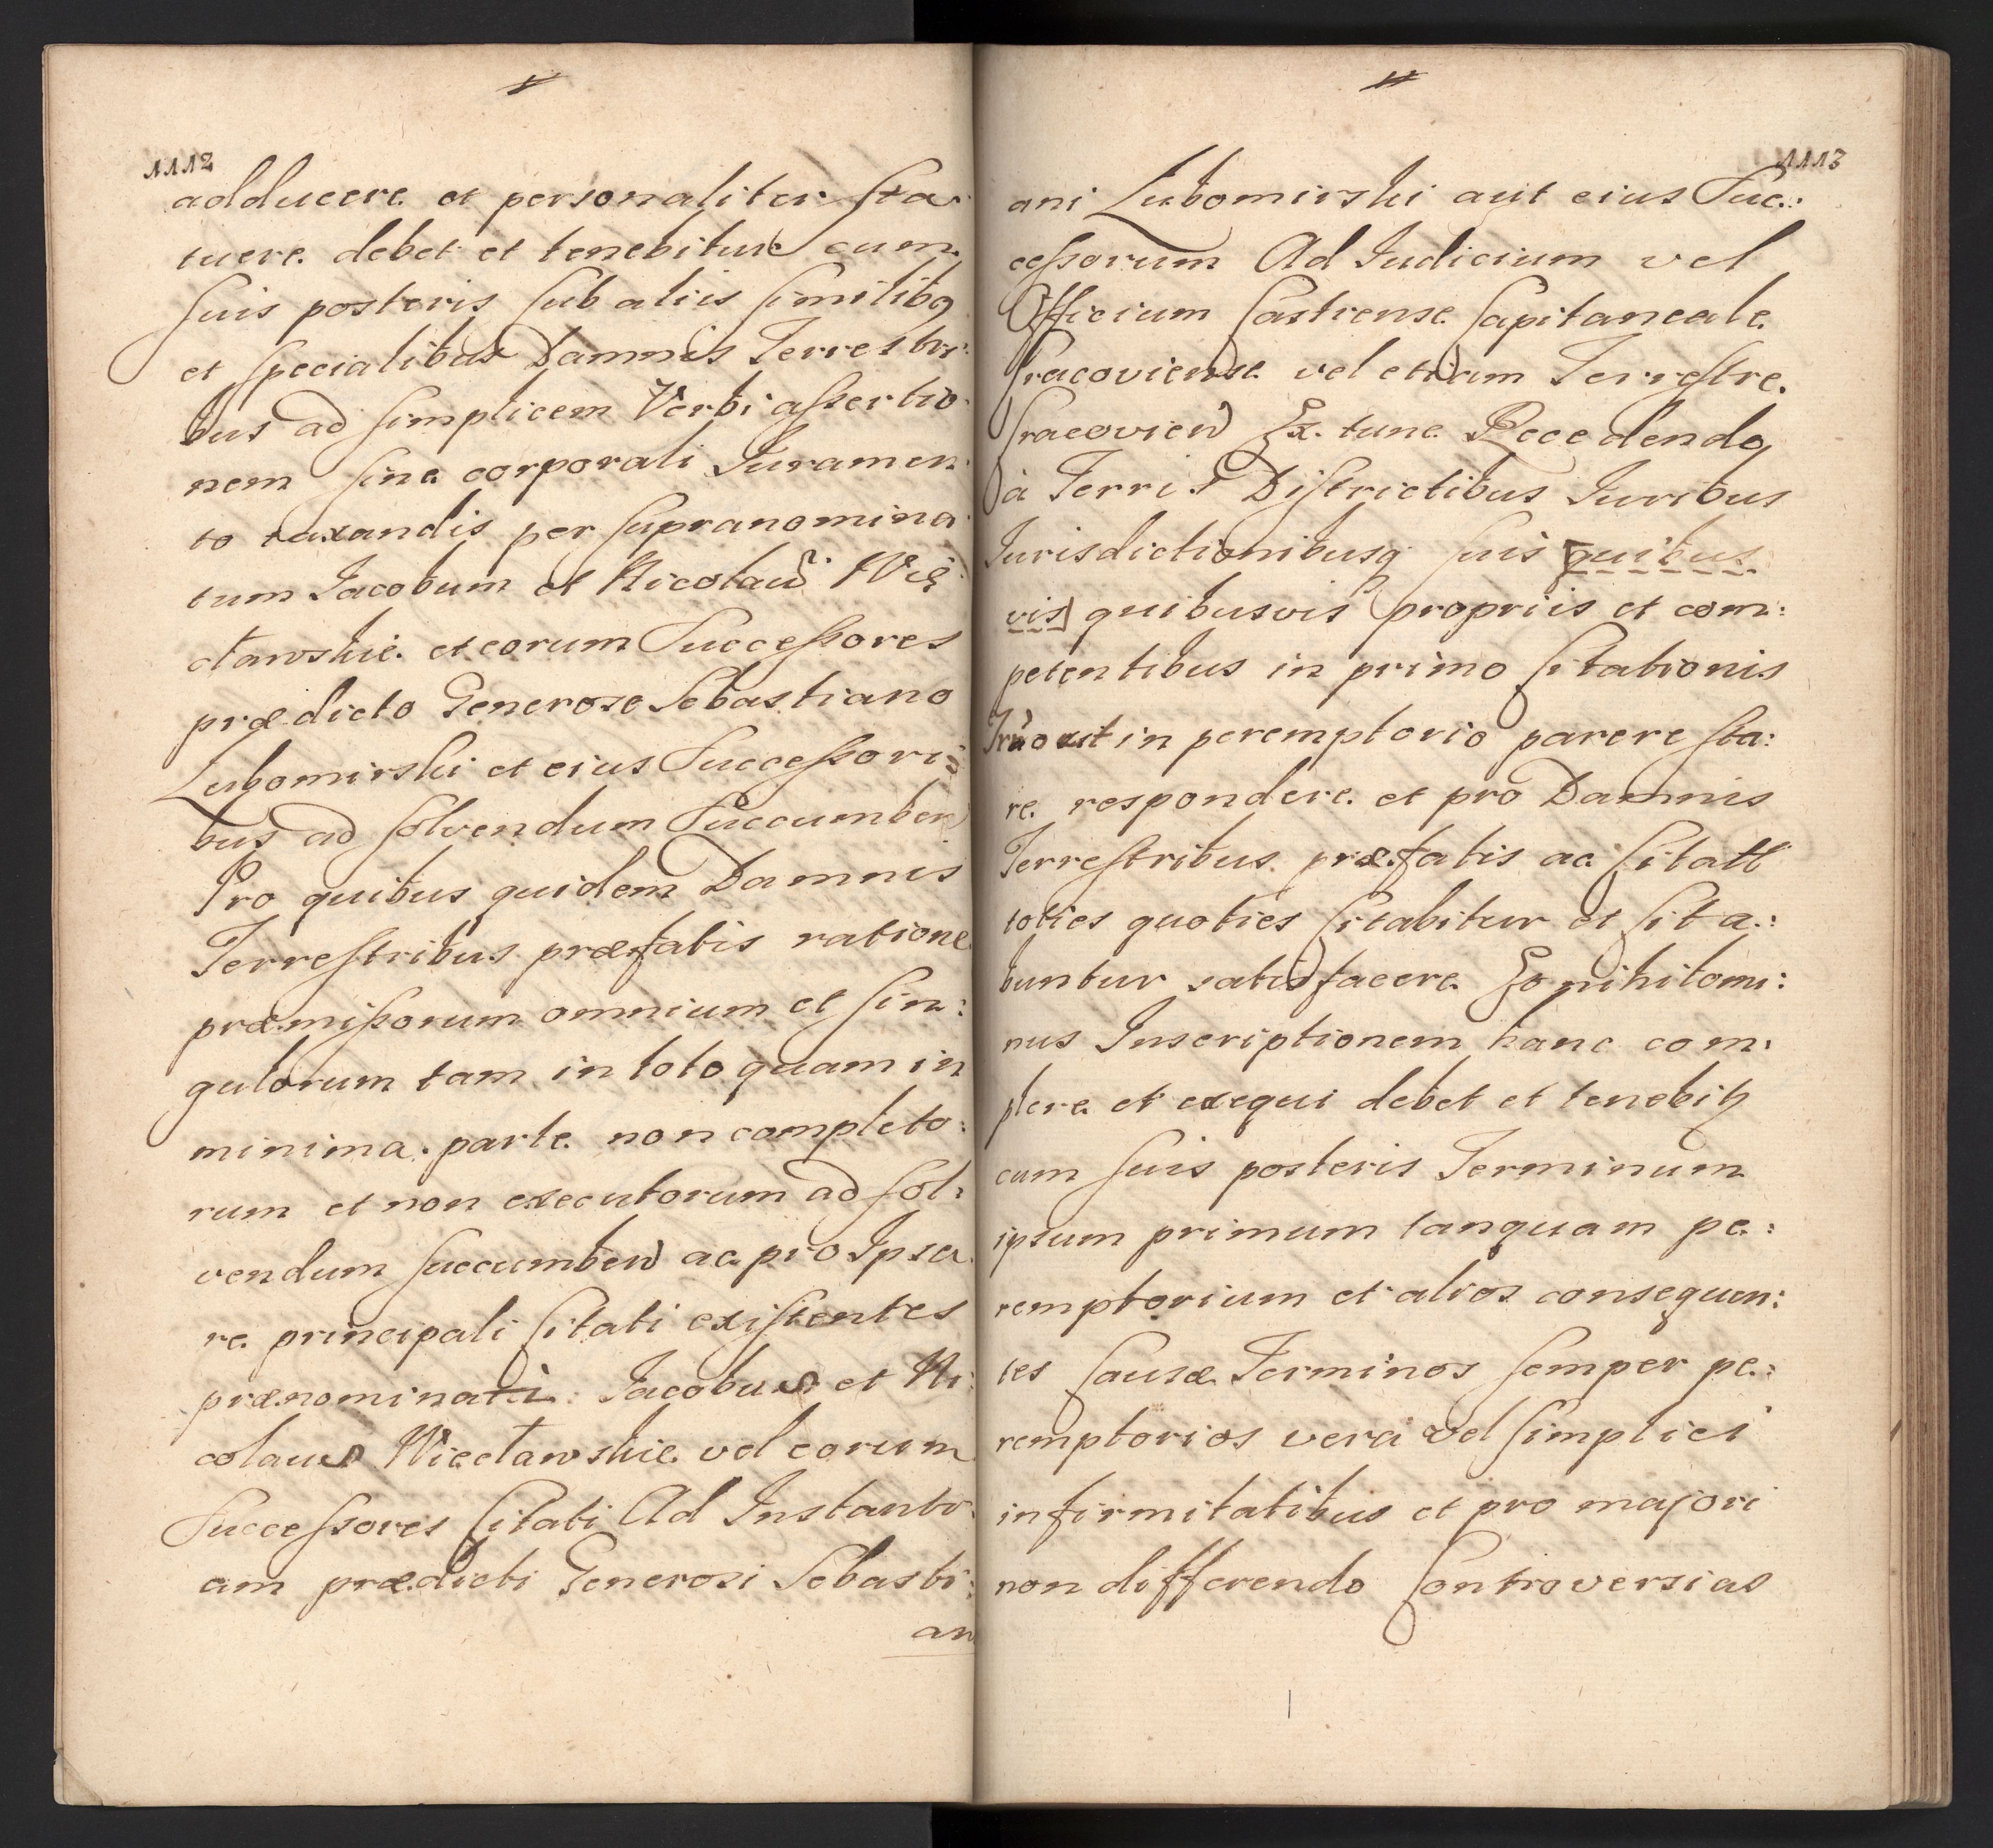 1112
adducere et personaliter sta-
tuere debet et tenebitur cum
suis posteris sub aliis similibq
et specialibus Damnis Terrestri-
bus ad simplicem Verbi assertio-
nem sine corporali Iuramen-
to taxandis per supranomina-
tum Iacobum et Nicolau Wię-
cławskie et eorum Successores
prædicto Generose Sebastiano
Lubomirski et eius Successori=
bus ad solvendum Succumben
Pro quibus quidem Damnis
Terrestribus præfatis ratione
præmissorum omnium et sin:
gulorum tam in toto quam in
minima parte non completo:
rum et non executorum ad sol:
vendum succumben ac pro Ipsa
re principali Citati existentes
prænominati Iacobus et Ni:
colaus Więcławskie vel eorum
Successores Citati Ad Instanti-
am prædicti Generosi Sebasti:
an
1113
ani Lubomirski aut eius Suc:
cessorum Ad Iudicium vel
Officium Castrense Capitaneale
Cracoviense vel etiam Terrestre
Cracovien Ex tunc Recedendo
à Terris Districtibus Iuribus
Iurisdictionibusq suis [quibus
vis] quibusvis propriis et com:
petentibus in primo Citationis
Trno aut in peremptorio parere sta:
re respondere et pro Damnis
Terrestribus præfatis ac Citatt
toties quoties Citabitur et Cita:
buntur satisfacere Eo nihilomi:
nus Inscriptionem hanc com:
plere et exequi debet et tenebit
cum suis posteris Terminum
ipsum primum tanquam pe:
remptorium et alios consequen:
tes Causæ Terminos semper pe:
remptorios verâ vel simplici
infirmitatibus et pro majori
non differendo Controversias